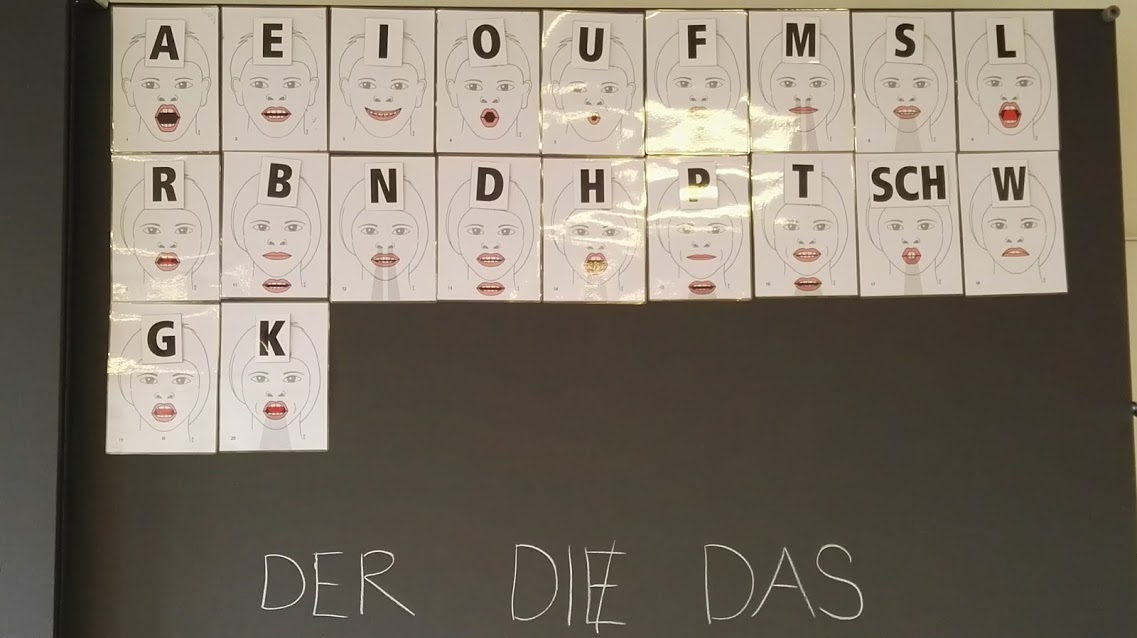 A E I O U F M S L
R B N D H P T SCH W
G K
DER DIE DAS